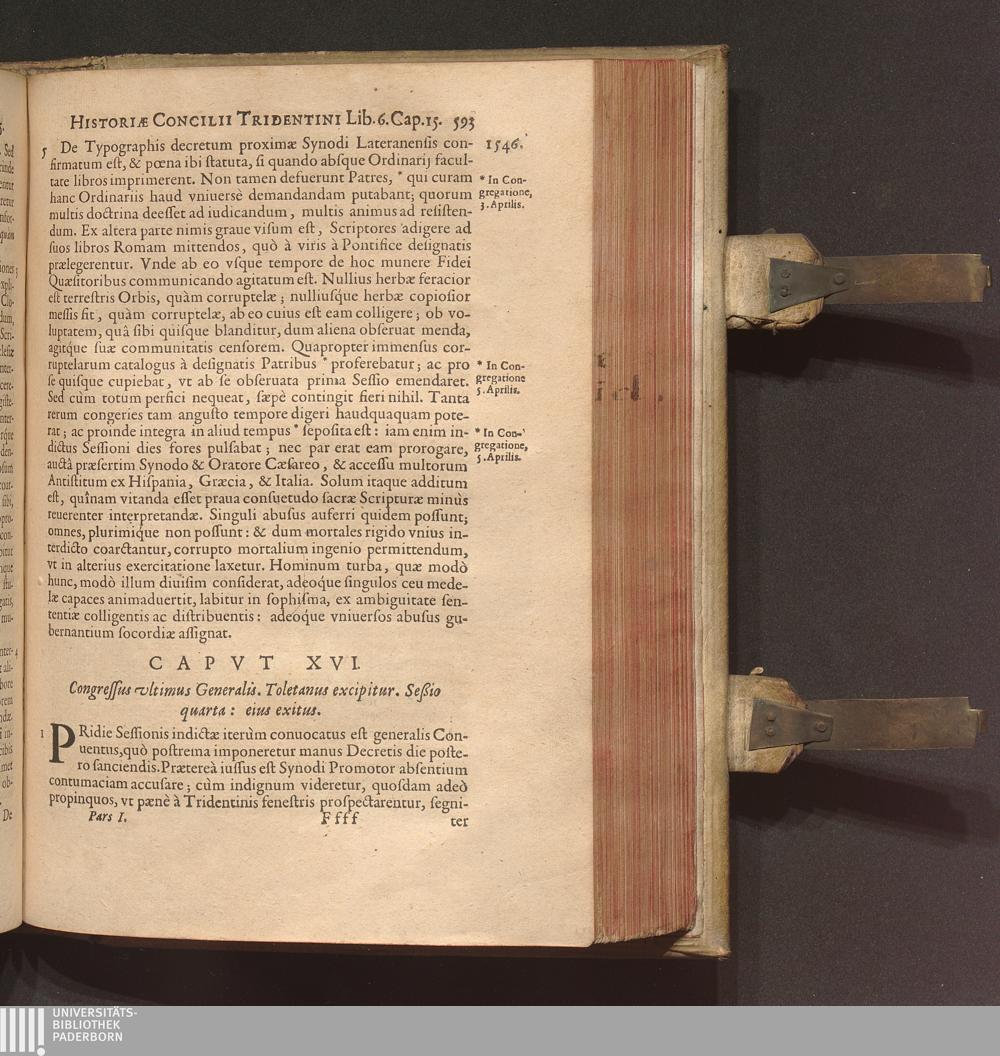 HISTORIÆ CONCILII TRIDENTINI Lib. 6. Cap. 15. 593
5 De Typographis decretum proximæ Synodi Lateranensis con-
firmatum est, & pœna ibi statuta, si quando absque Ordinarij facul-
tate libros imprimerent. Non tamen defuerunt Patres, * qui curam
hanc Ordinariis haud vniuersè demandandam putabant; quorum
multis doctrina deesset ad iudicandum, multis animus ad resisten-
dum. Ex altera parte nimis graue visum est, Scriptores adigere ad
suos libros Romam mittendos, quò à viris à Pontifice designatis
prælegerentur. Vnde ab eo vsque tempore de hoc munere Fidei
Quæsitoribus communicando agitatum est. Nullius herbæ feracior
est terrestris Orbis, quàm corruptelæ; nulliusque herbæ copiosior
messis sit, quàm corruptelæ, ab eo cuius est eam colligere; ob vo-
luptatem, quâ sibi quisque blanditur, dum aliena obseruat menda,
agitque suæ communitatis censorem. Quapropter immensus cor-
ruptelarum catalogus à designatis Patribus * proferebatur; ac pro
se quisque cupiebat, vt ab se obseruata prima Sessio emendaret.
Sed cùm totum perfici nequeat, sæpè contingit fieri nihil. Tanta
rerum congeries tam angusto tempore digeri haudquaquam pote-
rat; ac proinde integra in aliud tempus * seposita est: iam enim in-
dictus Sessioni dies fores pulsabat; nec par erat eam prorogare,
auctâ præsertim Synodo & Oratore Cæsareo, & accessu multorum
Antistitum ex Hispania, Græcia, & Italia. Solum itaque additum
est, quînam vitanda esset praua consuetudo sacræ Scripturæ minùs
reuerenter interpretandæ. Singuli abusus auferri quidem possunt;
omnes, plurimique non possunt: & dum mortales rigido vnius in-
terdicto coarctantur, corrupto mortalium ingenio permittendum,
vt in alterius exercitatione laxetur. Hominum turba, quæ modò
hunc, modò illum diuisim considerat, adeoque singulos ceu mede-
læ capaces animaduertit, labitur in sophisma, ex ambiguitate sen-
tentiæ colligentis ac distribuentis: adeóque vniuersos abusus gu-
bernantium socordiæ assignat.
1546.
* In Con-
gregatione,
3. Aprilis.
* In Con-
gregatione
5. Aprilis.
* In Con-
gregatione,
5. Aprilis.
CAPVT XVI.
Congressus vltimus Generalis. Toletanus excipitur. Seßio
quarta: eius exitus.
1 PRidie Sessionis indictæ iterùm conuocatus est generalis Con-
uentus, quò postrema imponeretur manus Decretis die poste-
ro sanciendis. Prætereà iussus est Synodi Promotor absentium
contumaciam accusare; cùm indignum videretur, quosdam adeò
propinquos, vt pænè à Tridentinis fenestris prospectarentur, segni-
Pars I. Ffff ter
UNIVERSITÄTS-
BIBLIOTHEK
PADERBORN